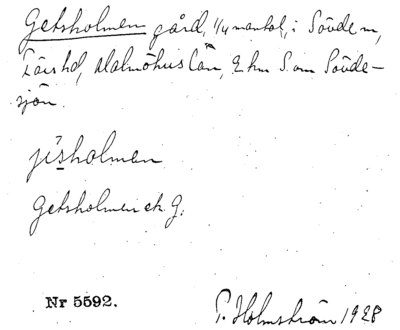 Getsholmen gård, 1/4 mantal, i Sövde sn,
Färs hd, Malmöhus län, 2 km S. om Sövde-
sjön.
jisholmen
Getsholmen ek. G.
Nr 5592.
P. Holmström 1928